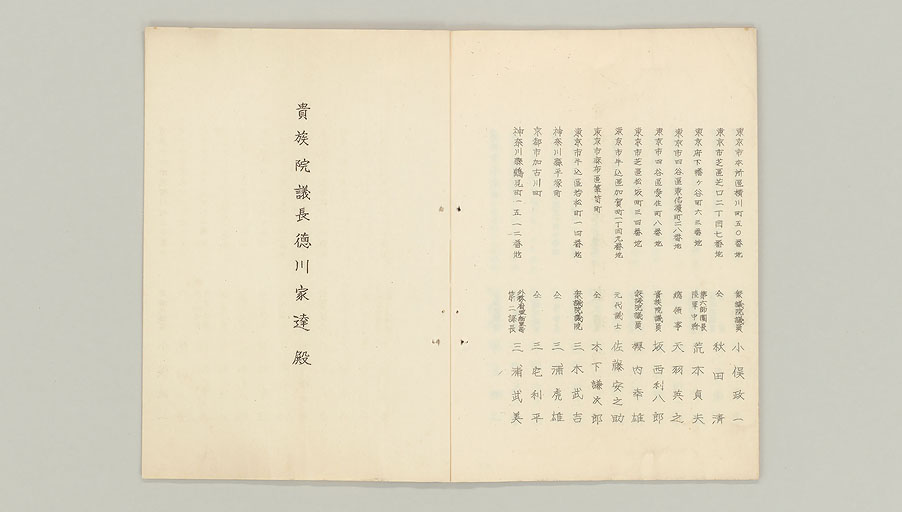 東京市本所區横川町五〇番地 衆議院議員 小俣政一
東京市芝區芝口二丁目七番地 仝 秋田清
東京府下幡ヶ谷町六三番地 第六師團長 陸軍中將 荒木貞夫
東京市四谷區東信濃町二八番地 總領事 天羽英之
東京市四谷區愛住町八番地 貴族院議員 坂西利八郎
東京市芝區松坂町三四番地 衆議院議員 櫻内幸雄
東京市牛込區加賀町一丁目九番地 元代議士 佐藤安之助
東京市麻布區簞笥町 仝 木下謙次郎
東京市牛込區若松町一四番地 衆議院議院 三木武吉
神奈川縣平塚町 仝 三浦虎雄
京都市加古川町 仝 三宅利平
神奈川縣鶴見町一五一三番地 第二課長 三浦武美
貴族院議長德川家達殿